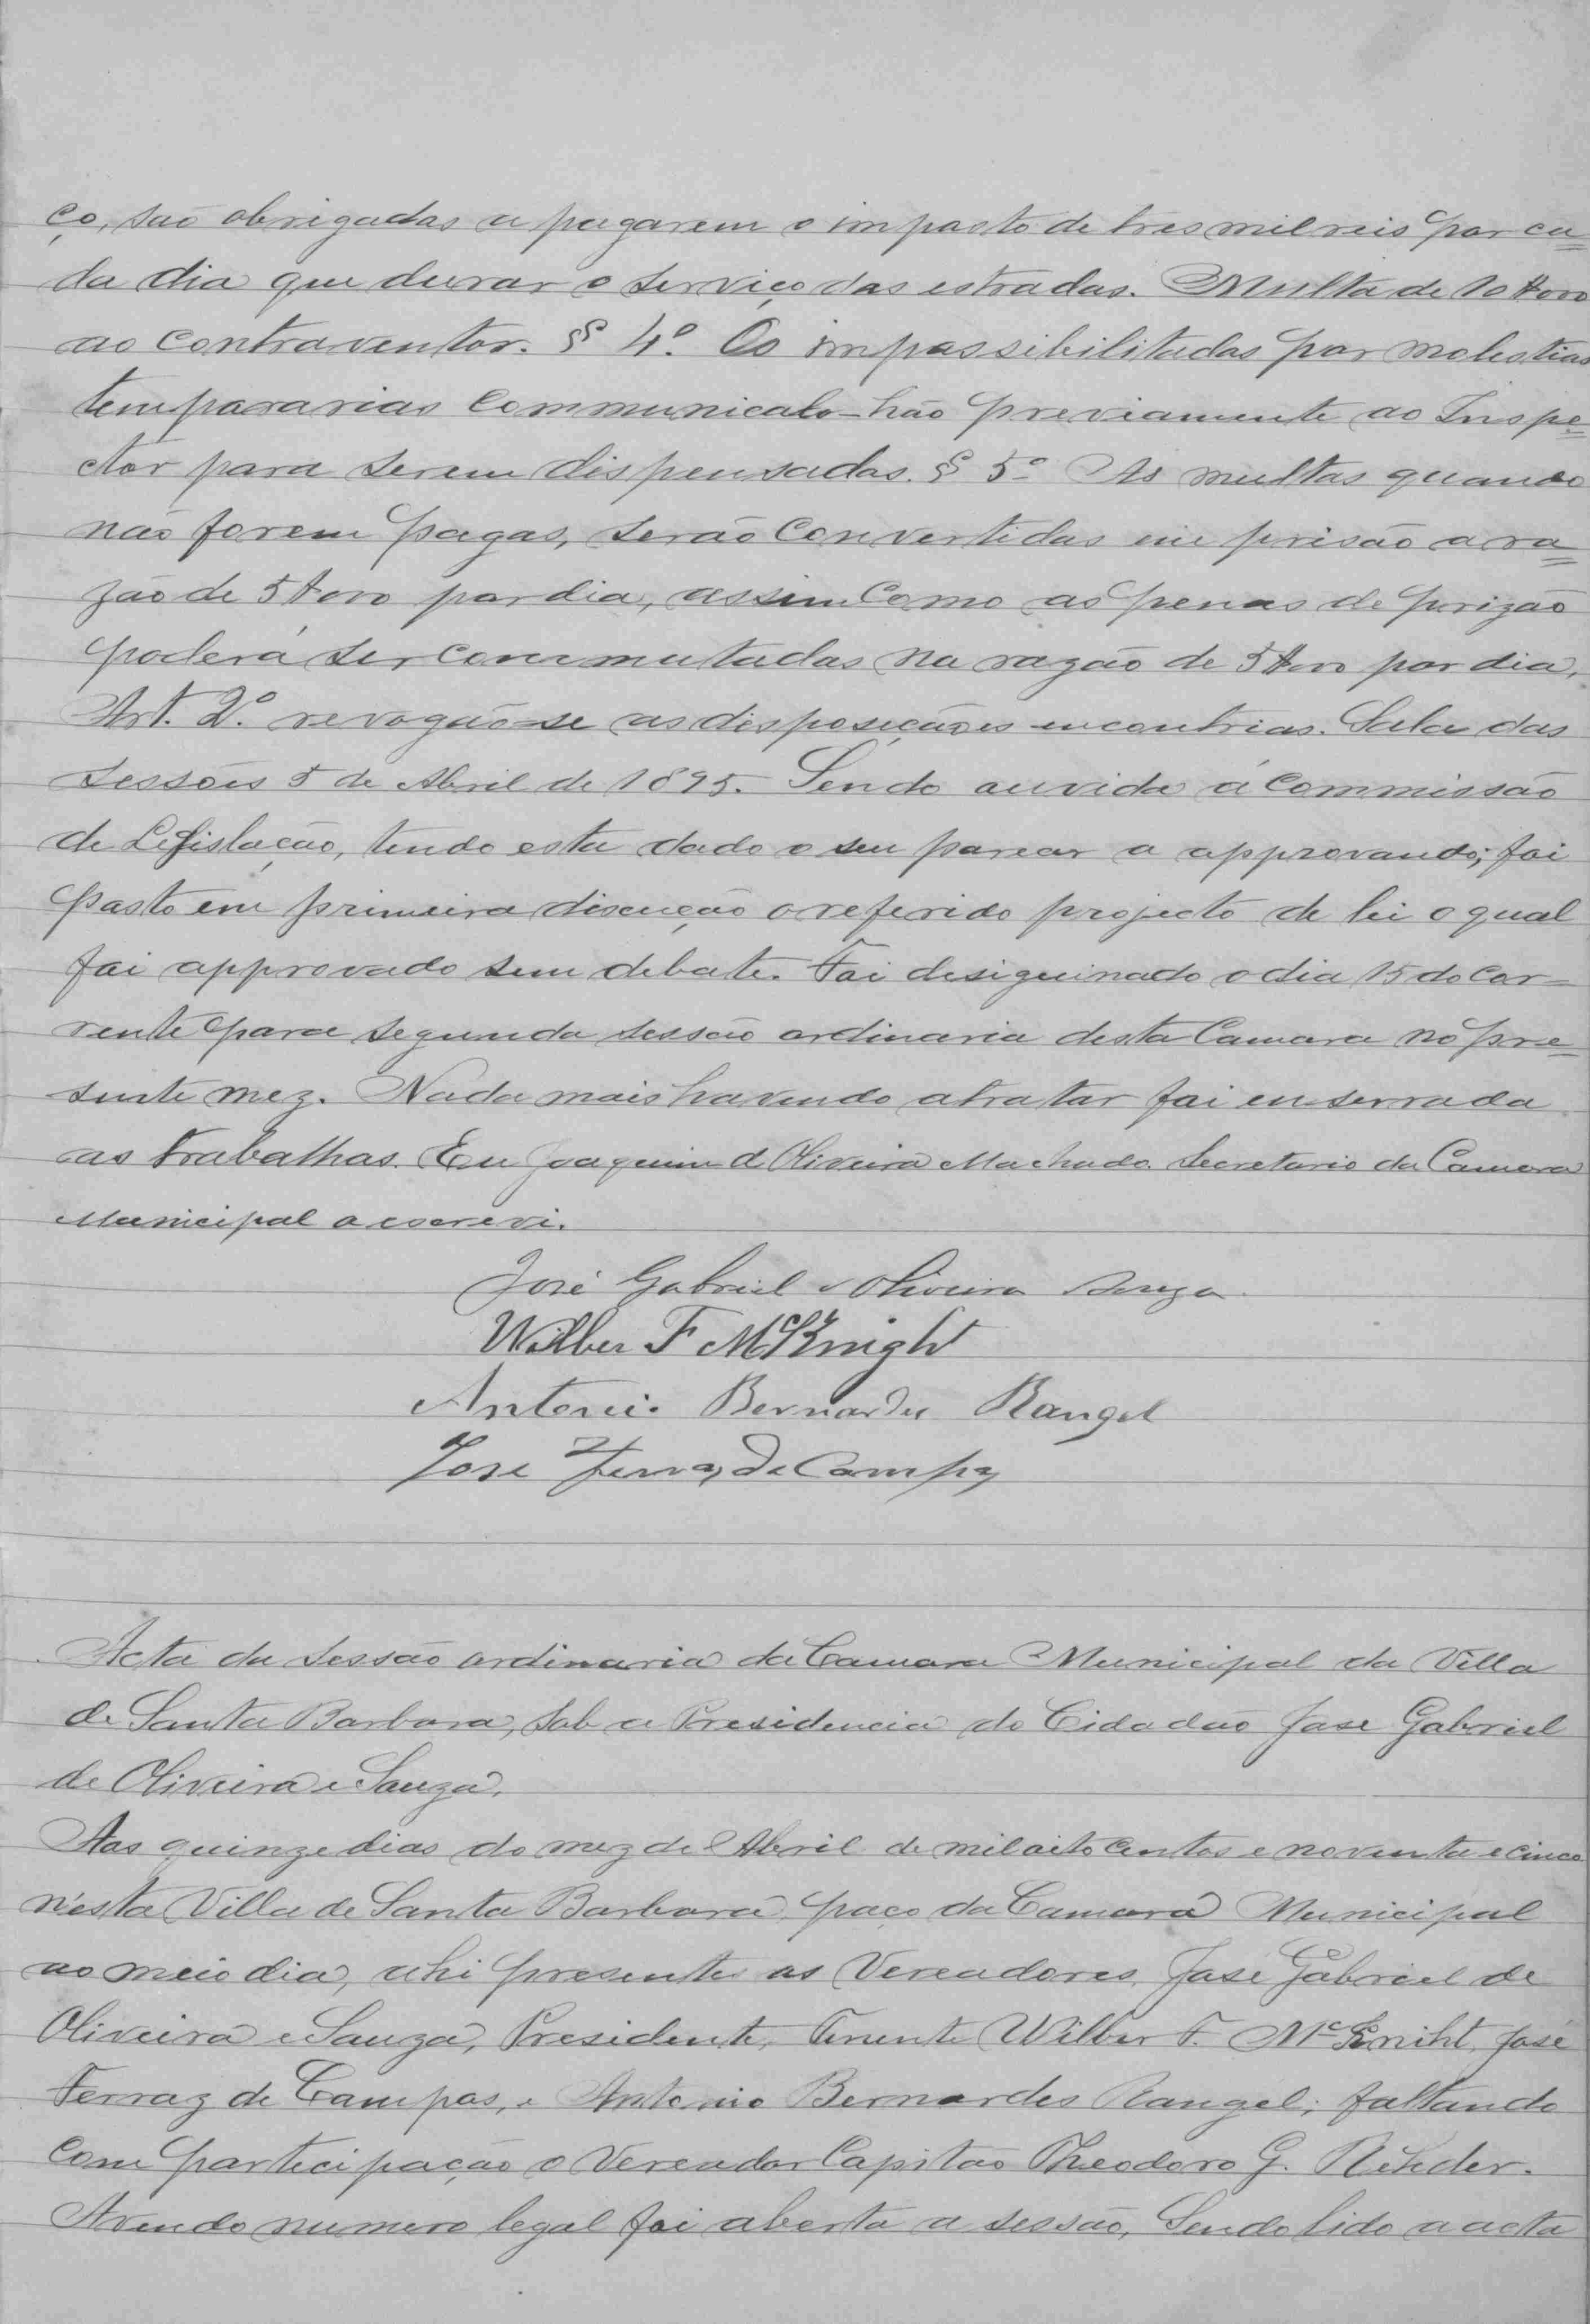 ço, são obrigados a pagarem o imposto de tres mil reis por ca=
da dia que durar o serviço das estradas. Multa de 10$000
ao contraventor. § 4º. Os impossibilitados por molestias
temporarias communical-o-hão previamente ao Inspe=
ctor para serem dispensados. § 5º As multas quando
não forem pagas, serão convertidas em prisão a ra=
zão de 5$000 por dia, assim como as penas de prizão
poderá ser commutadas na razão de 5$000 por dia.
Art. 2º. revogão-se as disposições encontrias. Sala das
Sessões 5 de Abril de 1895. Sendo ouvida a Commissão
de Legislação, tendo esta dado o seu parecer a approvando; foi
posto em primeira discução o referido projecto de lei o qual
foi approvado sem debate. Foi desiguinado o dia 15 do cor=
rente para segunda sessão ordinaria desta Camara no pre=
sente mez. Nada mais havendo a tratar foi enserrada
os trabalhos. Eu Joaquim d'Oliveira Machado. Secretario da Camara
Municipal a escrevi.
José Gabriel d'Oliveira Souza
Wilber F McKnight
Antonio Bernardes Rangel
Jose Ferraz de Campos
Acta da Sessão ordinaria da Camara Municipal da Villa
de Santa Barbara, Sob a Presidencia do Cidadão Jose Gabriel
de Oliveira e Souza.
Aos quinze dias do mez de Abril de mil oito centos e noventa e cinco
n'esta Villa de Santa Barbara paço da Camara Municipal
ao meio dia, ahi presente os Vereadores, José Gabriel de
Oliveira e Souza, Presidente, Tenente Wilber F. Mc Kniht, José
Ferraz de Campos, e Antonio Bernardes Rangel; faltando
com participação o Vereador Capitão Theodoro G. Rehder.
Avendo numero legal foi aberta a sessão, Sendo lido a acta